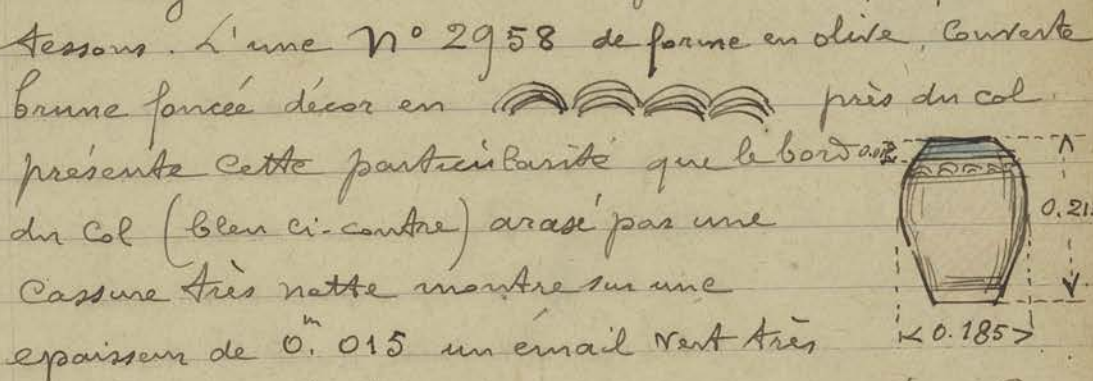 tessons. L'une N° 2958 de forme en olive, Couverte
brune foncée décor en près du col
présente cette particularité que le bord
du col (bleu ci-contre) arasé par une
0.21
Cassure très nette montre sur une
epaisseur de 0.m 015 un émail vert très
<0.185>